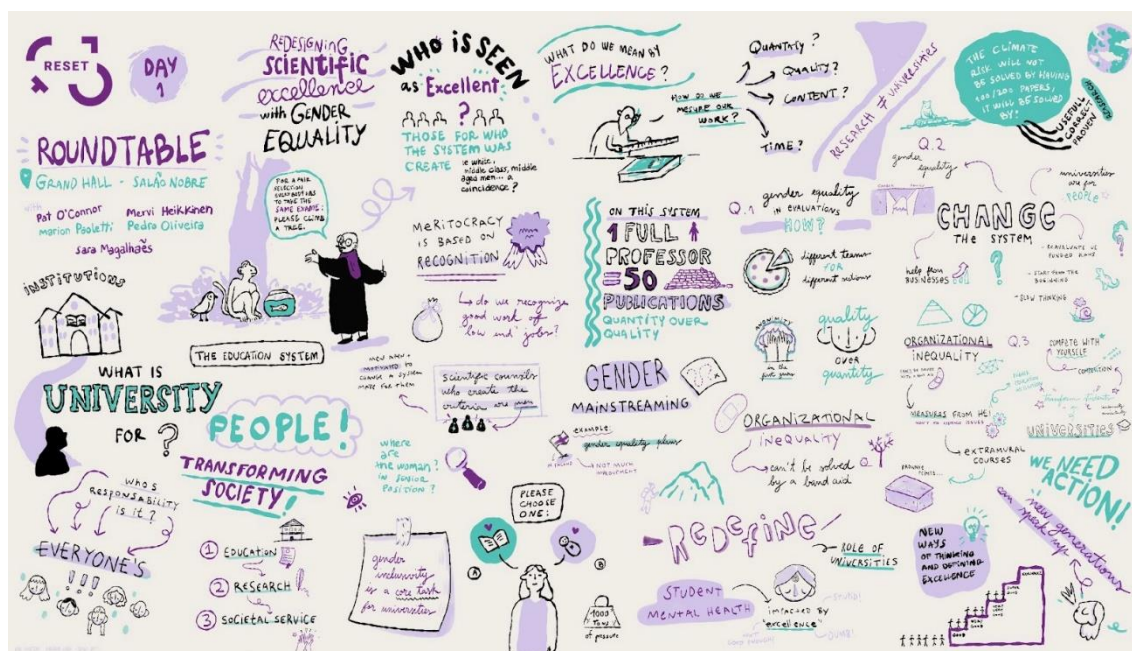 RESET
DAY
1
ROUNDTABLE
GRAND HALL - SALÃO NOBRE
with
Pat O'Connor
Mervi Heikkinen
Marion Paoletti
Pedro Oliveira
Sara Magalhães
INSTITUTIONS
WHAT IS
UNIVERSITY
FOR ?
WHO'S
RESPONSABILITY
IS it ?
EVERYONE'S
!!!
REDESIGNING
SCIENTIFIC
excellence
with GENDER
EQUALITY
FOR A FAIR
SELECTION
EVERYBODY HAS
TO TAKE THE
SAME EXAM:
PLEASE CLIMB
A TREE.
THE EDUCATION SYSTEM
PEOPLE!
TRANSFORMING
SOCIETY!
1 EDUCATION
2 RESEARCH
3 SOCIETAL SERVICE
WHO IS SEEN
as Excellent
?
THOSE FOR WHO
THE SYSTEM WAS
CREATE
ie white,
middle class, middle
aged men... a
coincidence ?
MERITOCRACY
IS BASED ON
RECOGNITION
do we recognize
good work of
'low end' jobs?
MOTIVATED TO
CHANGE A SYSTEM
MADE FOR THEM
scientific councils
who create the
criteria are men
where
are
the woman?
in senior
position ?
gender
inclusivity
is a core task
for universities
PLEASE
CHOOSE
ONE:
A
B
1000
TONS
of pressure
WHAT DO WE MEAN BY
EXCELLENCE ?
HOW DO WE
MESURE OUR
WORK ?
QUANTITY ?
QUALITY ?
CONTENT ?
TIME ?
ON THIS SYSTEM
1 FULL
PROFESSOR
= 50
PUBLICATIONS
QUANTITY OVER
QUALITY
GENDER
MAINSTREAMING
example:
gender equality plans
NOT MUCH
REDEFINE
ROLE OF
UNIVERSITIES
STUDENT
MENTAL HEALTH
impacted by
"excellence"
RESEARCH ≠ UNIVERSITIES
THE CLIMATE
RISK WILL NOT
BE SOLVED BY HAVING
100/200 PAPERS,
IT WILL BE SOLVED
BY:
RESEARCH
USEFULL
CORRECT
PROVEN
Q.1
gender equality
IN EVALUATIONS
HOW?
different teams
FOR
different nations
ANONIMITY
in the first years
quality
over
quantity
ORGANIZATIONAL
INEQUALITY
can't be solved
by a band aid
Q.2
gender
equality
universities
are for
PEOPLE
CHANGE
THE SYSTEM
help from
BUSINESSES
START FROM THE
BEGINNING
SLOW THINKING
ORGANIZATIONAL
INEQUALITY
Q.3
COMPETE WITH
YOURSELF
COMPETITION
MEASURES FROM HEI
UNIVERSITIES
EXTRAMURAL
COURSES
WE NEED
ACTION!
new generations
can speak up
NEW
WAYS
OF THINKING
AND DEFINING
EXCELLENCE